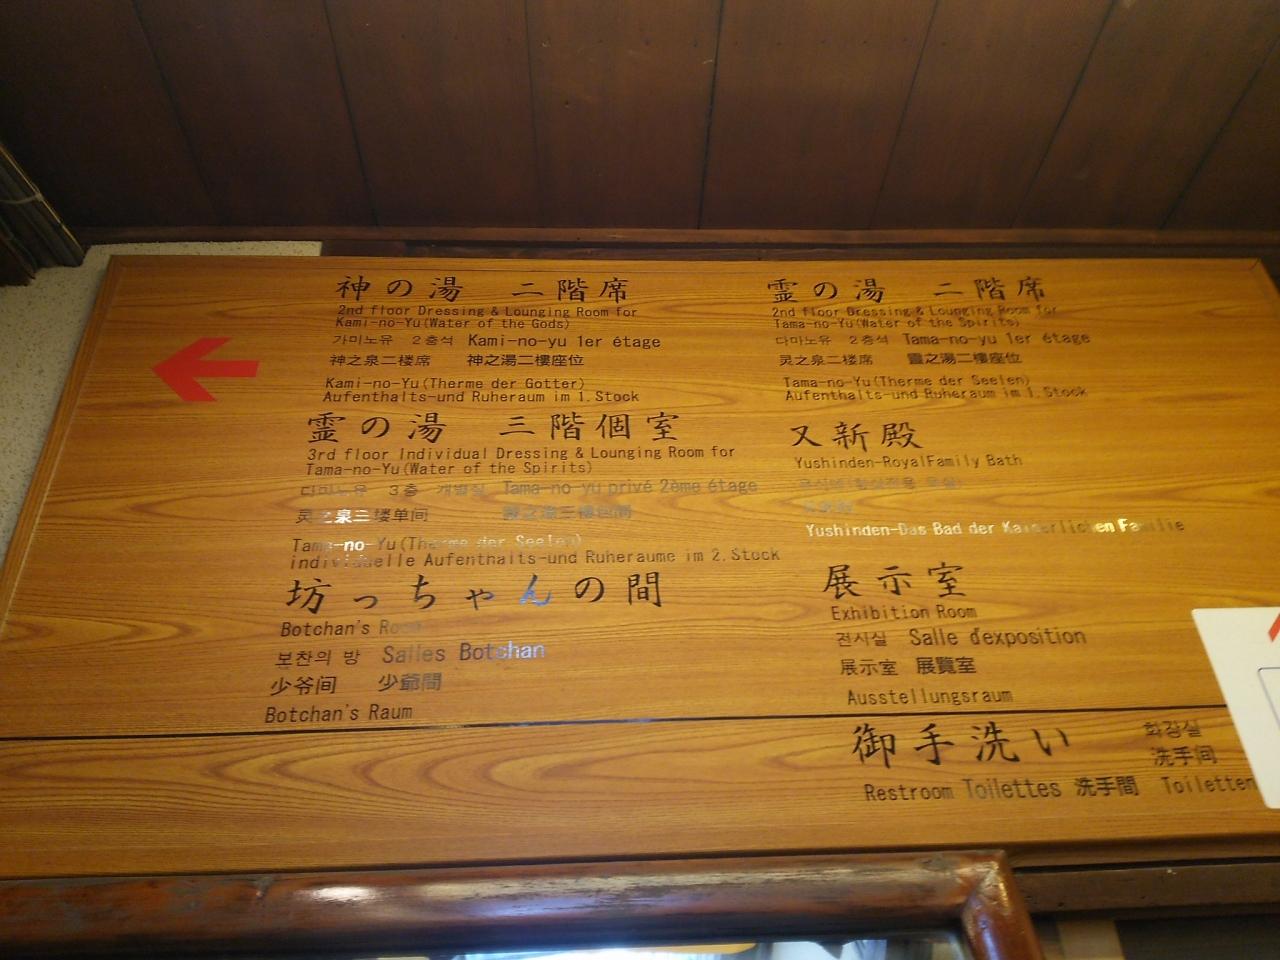 神の湯 二階席
2nd floor Dressing & Lounging Room for
Kami-no-Yu(Water of the Gods)
가미노유 2층석 Kami-no-yu 1er étage
神之泉二楼席 神之湯二樓座位
Kami-no-Yu(Therme der Gotter)
Aufenthalts-und Ruheraum im 1.Stock
霊の湯 三階個室
3rd floor Individual Dressing & Lounging Room for
Tama-no-Yu(Water of the Spirits)
다마노유 3층 개별실 Tama-no yu privé 2ème étage
灵之泉三楼单间 靈之湯三樓包間
Tama-no-Yu(Therme der Seelen)
individuelle Aufenthalts-und Ruheraume im 2.Stock
坊っちゃんの間
Botchan's Room
보찬의 방 Salles Botchan
少爷间 少爺間
Botchan's Raum
霊の湯 二階席
2nd floor Dressing & Lounging Room for
Tama-no-Yu(Water of the Spirits)
다마노유 2층석 Tama-no-yu 1er étage
灵之泉二楼席 靈之湯二樓座位
Tama-no-Yu(Therme der Seelen)
Aufenthalts-und Ruheraum im 1.Stock
又新殿
Yushinden-RoyalFamily Bath
Yushinden-Das Bad der Kaiserlichen Familie
展示室
Exhibition Room
전시실 Salle d'exposition
展示室 展覽室
Ausstellungsraum
御手洗い
화장실
洗手间
Restroom Toilettes 洗手間 Toiletten